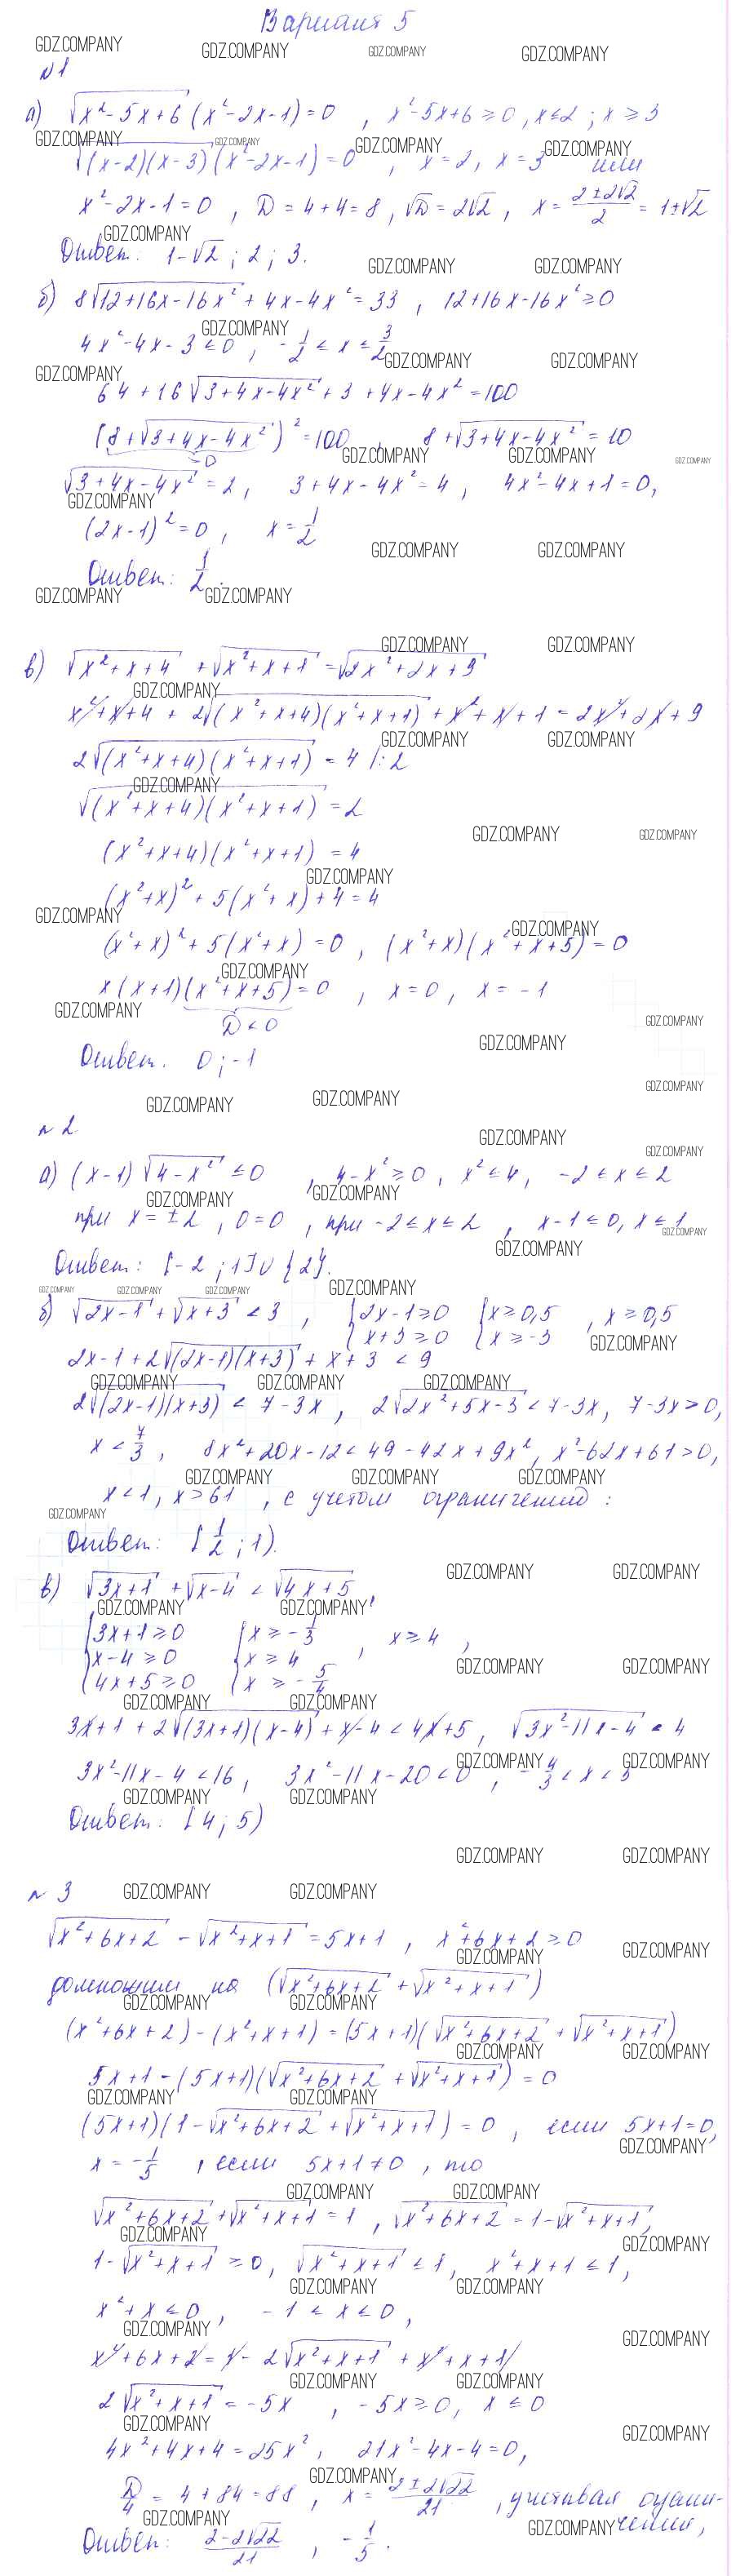 Вариант 5
№1
а) √(x²-5x+6) (x²-2x-1)=0 , x²-5x+6≥0, x≤2 ; x≥3
√((x-2)(x-3)) (x²-2x-1)=0 , x=2, x=3 или
x²-2x-1=0 , D=4+4=8, √D=2√2 , x=(2±2√2)/2=1±√2
Ответ: 1-√2 ; 2 ; 3.
б) 8√(12+16x-16x²)+4x-4x²=33 , 12+16x-16x²≥0
4x²-4x-3≤0 , -1/2≤x≤3/2
64+16√(3+4x-4x²)+3+4x-4x²=100
(8+√(3+4x-4x²))²=100 , 8+√(3+4x-4x²)=10
√(3+4x-4x²)=2, 3+4x-4x²=4, 4x²-4x+1=0,
(2x-1)²=0 , x=1/2
Ответ: 1/2.
в) √(x²+x+4) +√(x²+x+1)=√(2x²+2x+9)
x²+x+4 + 2√((x²+x+4)(x²+x+1)) + x²+x+1=2x²+2x+9
2√((x²+x+4)(x²+x+1)) = 4 |:2
√((x²+x+4)(x²+x+1)) = 2
(x²+x+4)(x²+x+1) = 4
(x²+x)²+5(x²+x)+4=4
(x²+x)²+5(x²+x)=0 , (x²+x)(x²+x+5)=0
x(x+1)(x²+x+5)=0 , x=0, x=-1
D<0
Ответ. 0;-1
№2
а) (x-1)√(4-x²)≤0 , 4-x²≥0, x²≤4, -2≤x≤2
при x=±2 , 0=0 , при -2≤x≤2 , x-1≤0, x≤1
Ответ: [-2 ; 1]∪{2}.
б) √(2x-1)+√(x+3)<3 , {2x-1≥0 {x≥0,5 , x≥0,5
{x+3≥0 {x≥-3
2x-1+2√((2x-1)(x+3)) + x+3 <9
2√((2x-1)(x+3)) < 7-3x , 2√(2x²+5x-3)<7-3x, 7-3x>0,
x<7/3 , 8x²+20x-12<49-42x+9x², x²-62x+61>0,
x<1, x>61 , с учетом ограничений :
Ответ: [1/2 ; 1).
в) √(3x+1) +√(x-4) <√(4x+5) ,
{3x+1≥0 {x≥-1/3
{x-4≥0 {x≥4 , x≥4 ,
{4x+5≥0 {x≥-5/4
3x+1+2√((3x+1)(x-4))+x-4<4x+5, √(3x²-11x-4)<4
3x²-11x-4<16, 3x²-11x-20<0 , -4/3<x<5
Ответ: [4 ; 5)
№3
√(x²+6x+2) -√(x²+x+1)=5x+1 , x²+6x+2≥0
домножим на (√(x²+6x+2) +√(x²+x+1))
(x²+6x+2)-(x²+x+1)=(5x+1)(√(x²+6x+2) +√(x²+x+1))
5x+1-(5x+1)(√(x²+6x+2) +√(x²+x+1))=0
(5x+1)(1-√(x²+6x+2) +√(x²+x+1))=0 , если 5x+1=0,
x=-1/5 , если 5x+1≠0 , то
√(x²+6x+2)+√(x²+x+1)=1 , √(x²+6x+2)=1-√(x²+x+1),
1-√(x²+x+1)≥0, √(x²+x+1)≤1, x²+x+1≤1,
x²+x≤0 , -1≤x≤0 ,
x²+6x+2=1-2√(x²+x+1) +x²+x+1
2√(x²+x+1)=-5x , -5x≥0, x≤0
4x²+4x+4=25x², 21x²-4x-4=0,
D/4=4+84=88 , x=(2±2√22)/21 , учитывая ограни-
чения,
Ответ: (2-2√22)/21 , -1/5.
GDZ.COMPANY